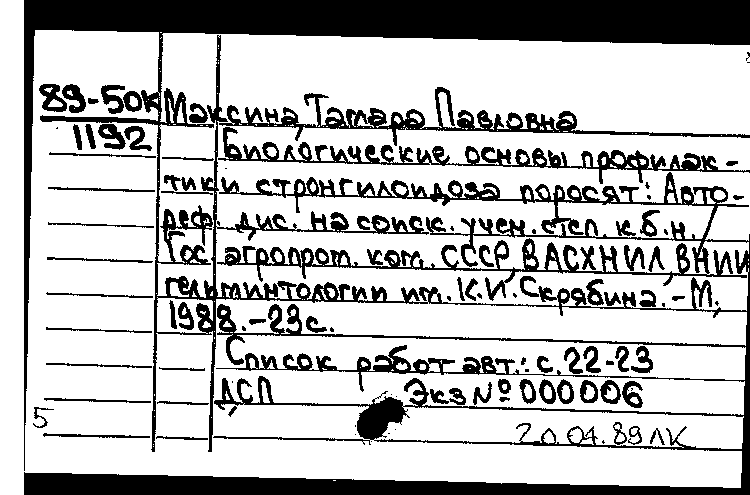 89-50К Максина, Тамара Павловна
1192 Биологические основы профилак-
тики стронгилоидоза поросят: Авто-
реф. дис. на соиск. учен. степ. к.б.н. /
Гос. агропром. ком. СССР, ВАСХНИЛ, ВНИИ
гельминтологии им. К.И. Скрябина. - М.,
1988. - 23 с.
Список работ авт.: с. 22-23
ДСП Экз № 000006
5 20.04.89 ЛК